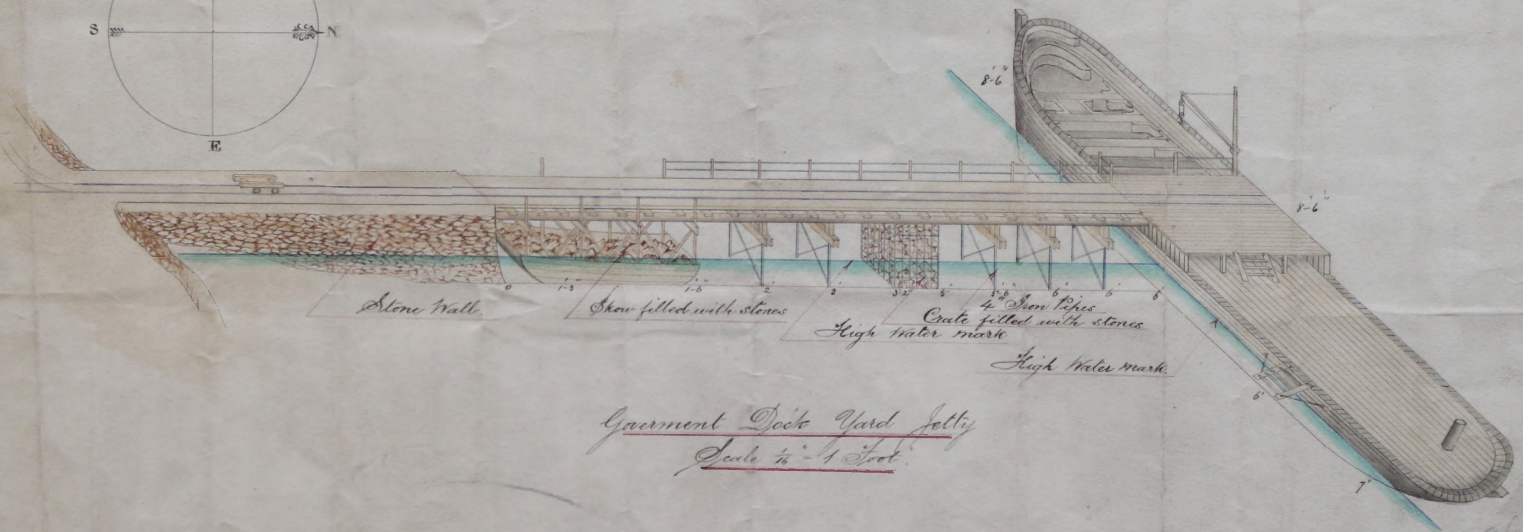 S N
E
8'-6"
8'-6"
0 1'-3" 1'-6" 2' 3' 3'-2" 5' 5'-6 6' 6' 6'
Stone Wall
Skow filled with stones
4" Iron Pipes
Crate filled with stones
High Water mark
High Water mark.
6'
7'
Goverment Dock Yard Jetty
Scale 1/16" = 1 Foot.